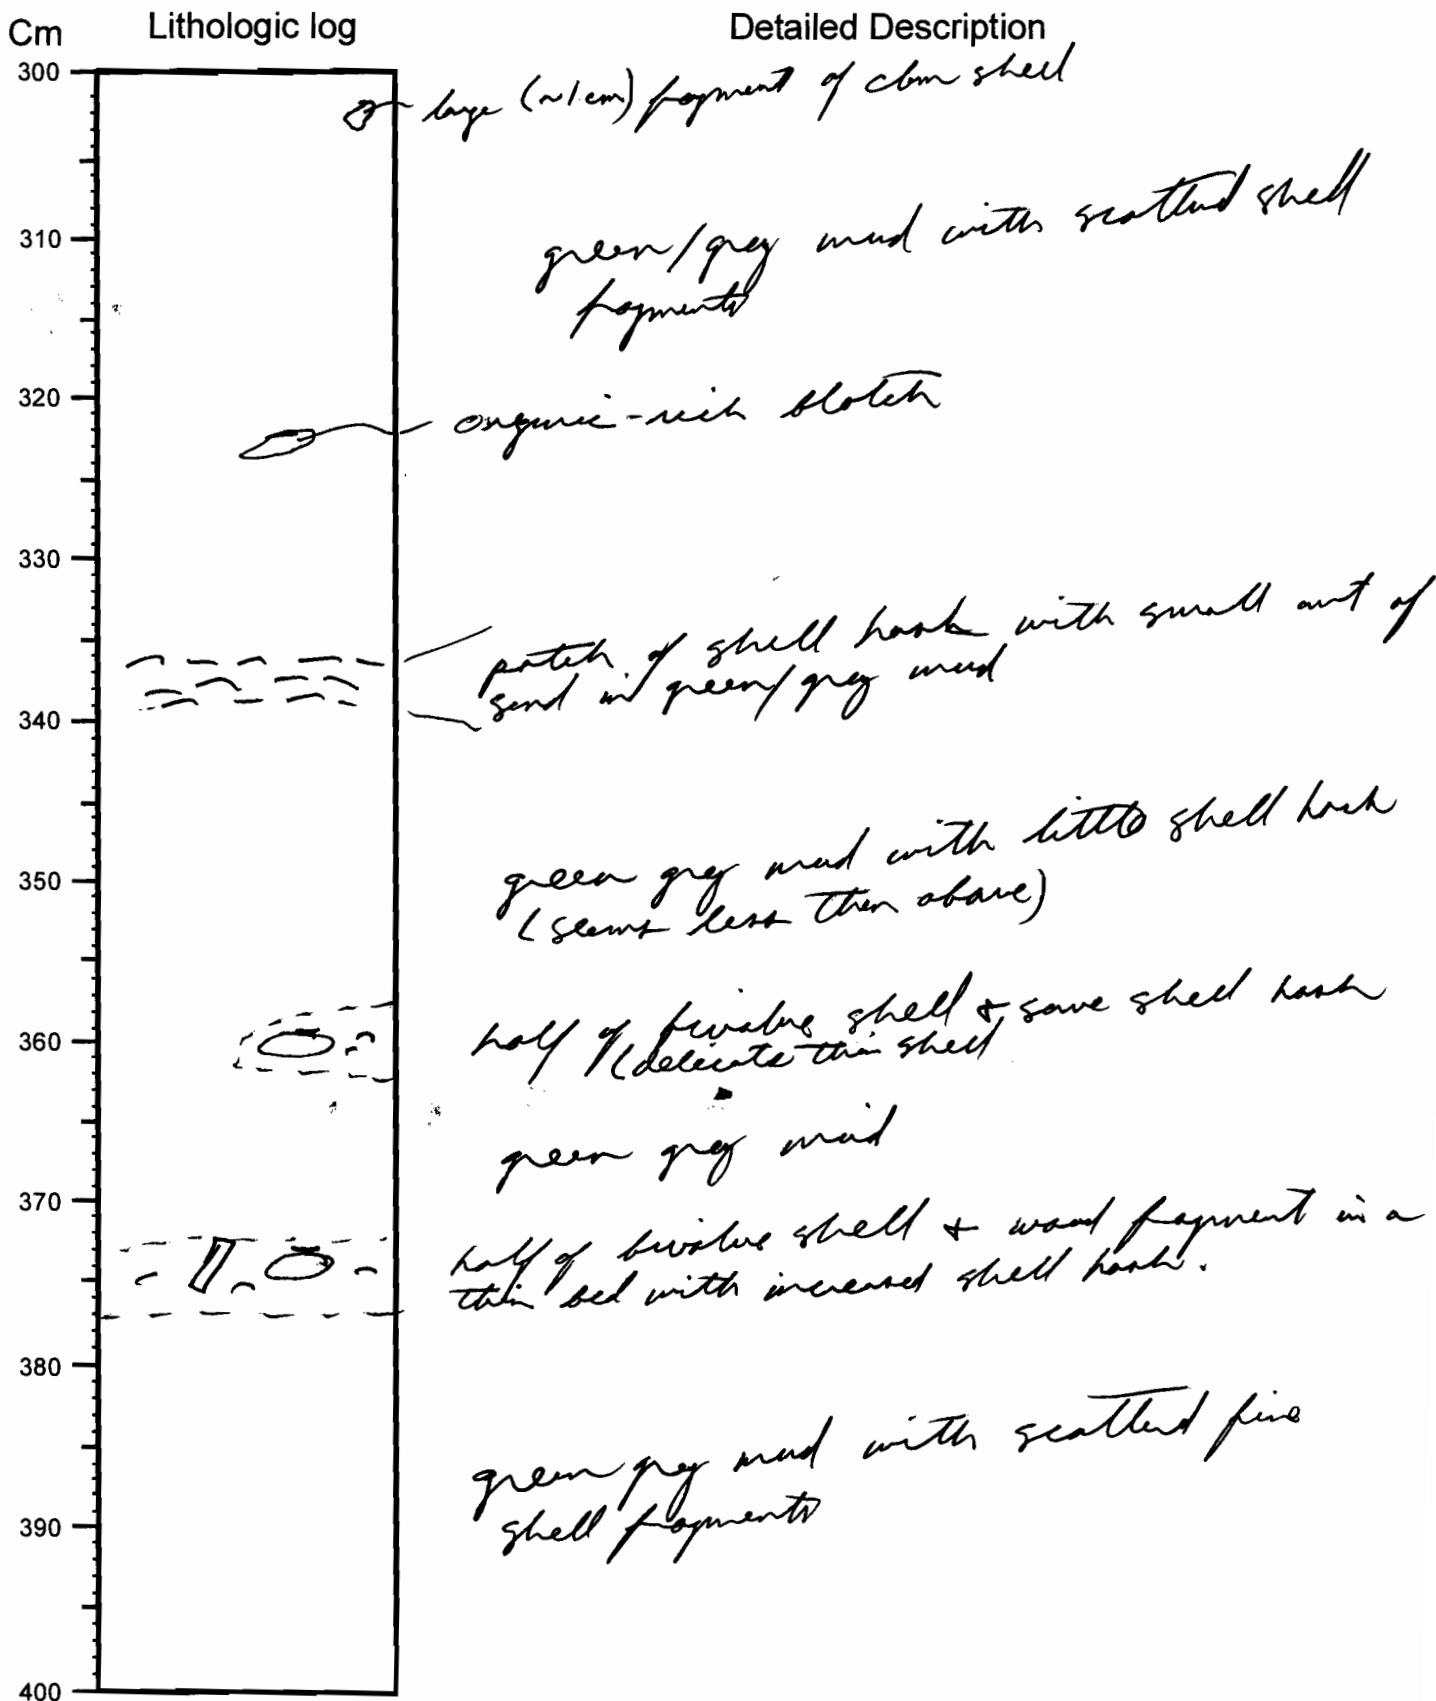 Cm Lithologic log Detailed Description
300
large (~1cm) fragment of clam shell
310
green/grey mud with scattered shell
fragments
320
organic-rich blotch
330
patch of shell hash with small amt of
sand in green/grey mud
340
green grey mud with little shell hash
350
(seems less then above)
half of bivalve shell & some shell hash
360
(delicate thin shell
green grey mud
370
half of bivalve shell & wood fragment in a
thin bed with increased shell hash.
380
green grey mud with scattered fine
390
shell fragments
400